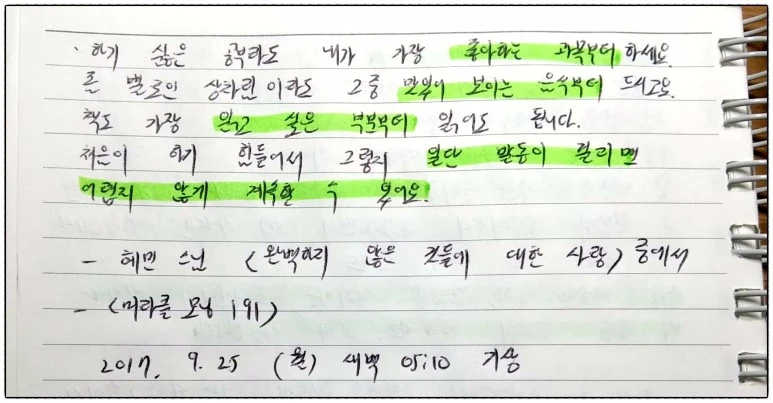 · 하기 싫은 공부라도 내가 가장 좋아하는 과목부터 하세요.
큰 별로인 상차림이라도 그중 맛있어 보이는 음식부터 드시고요.
책도 가장 읽고 싶은 부분부터 읽어도 됩니다.
처음이 하기 힘들어서 그렇지 일단 발동이 걸리면
어렵지 않게 계속할 수 있어요!
- 혜민 스님 <완벽하지 않은 것들에 대한 사랑> 중에서
- <미라클 모닝 191>
2017. 9. 25 (월) 새벽 05:10 기상